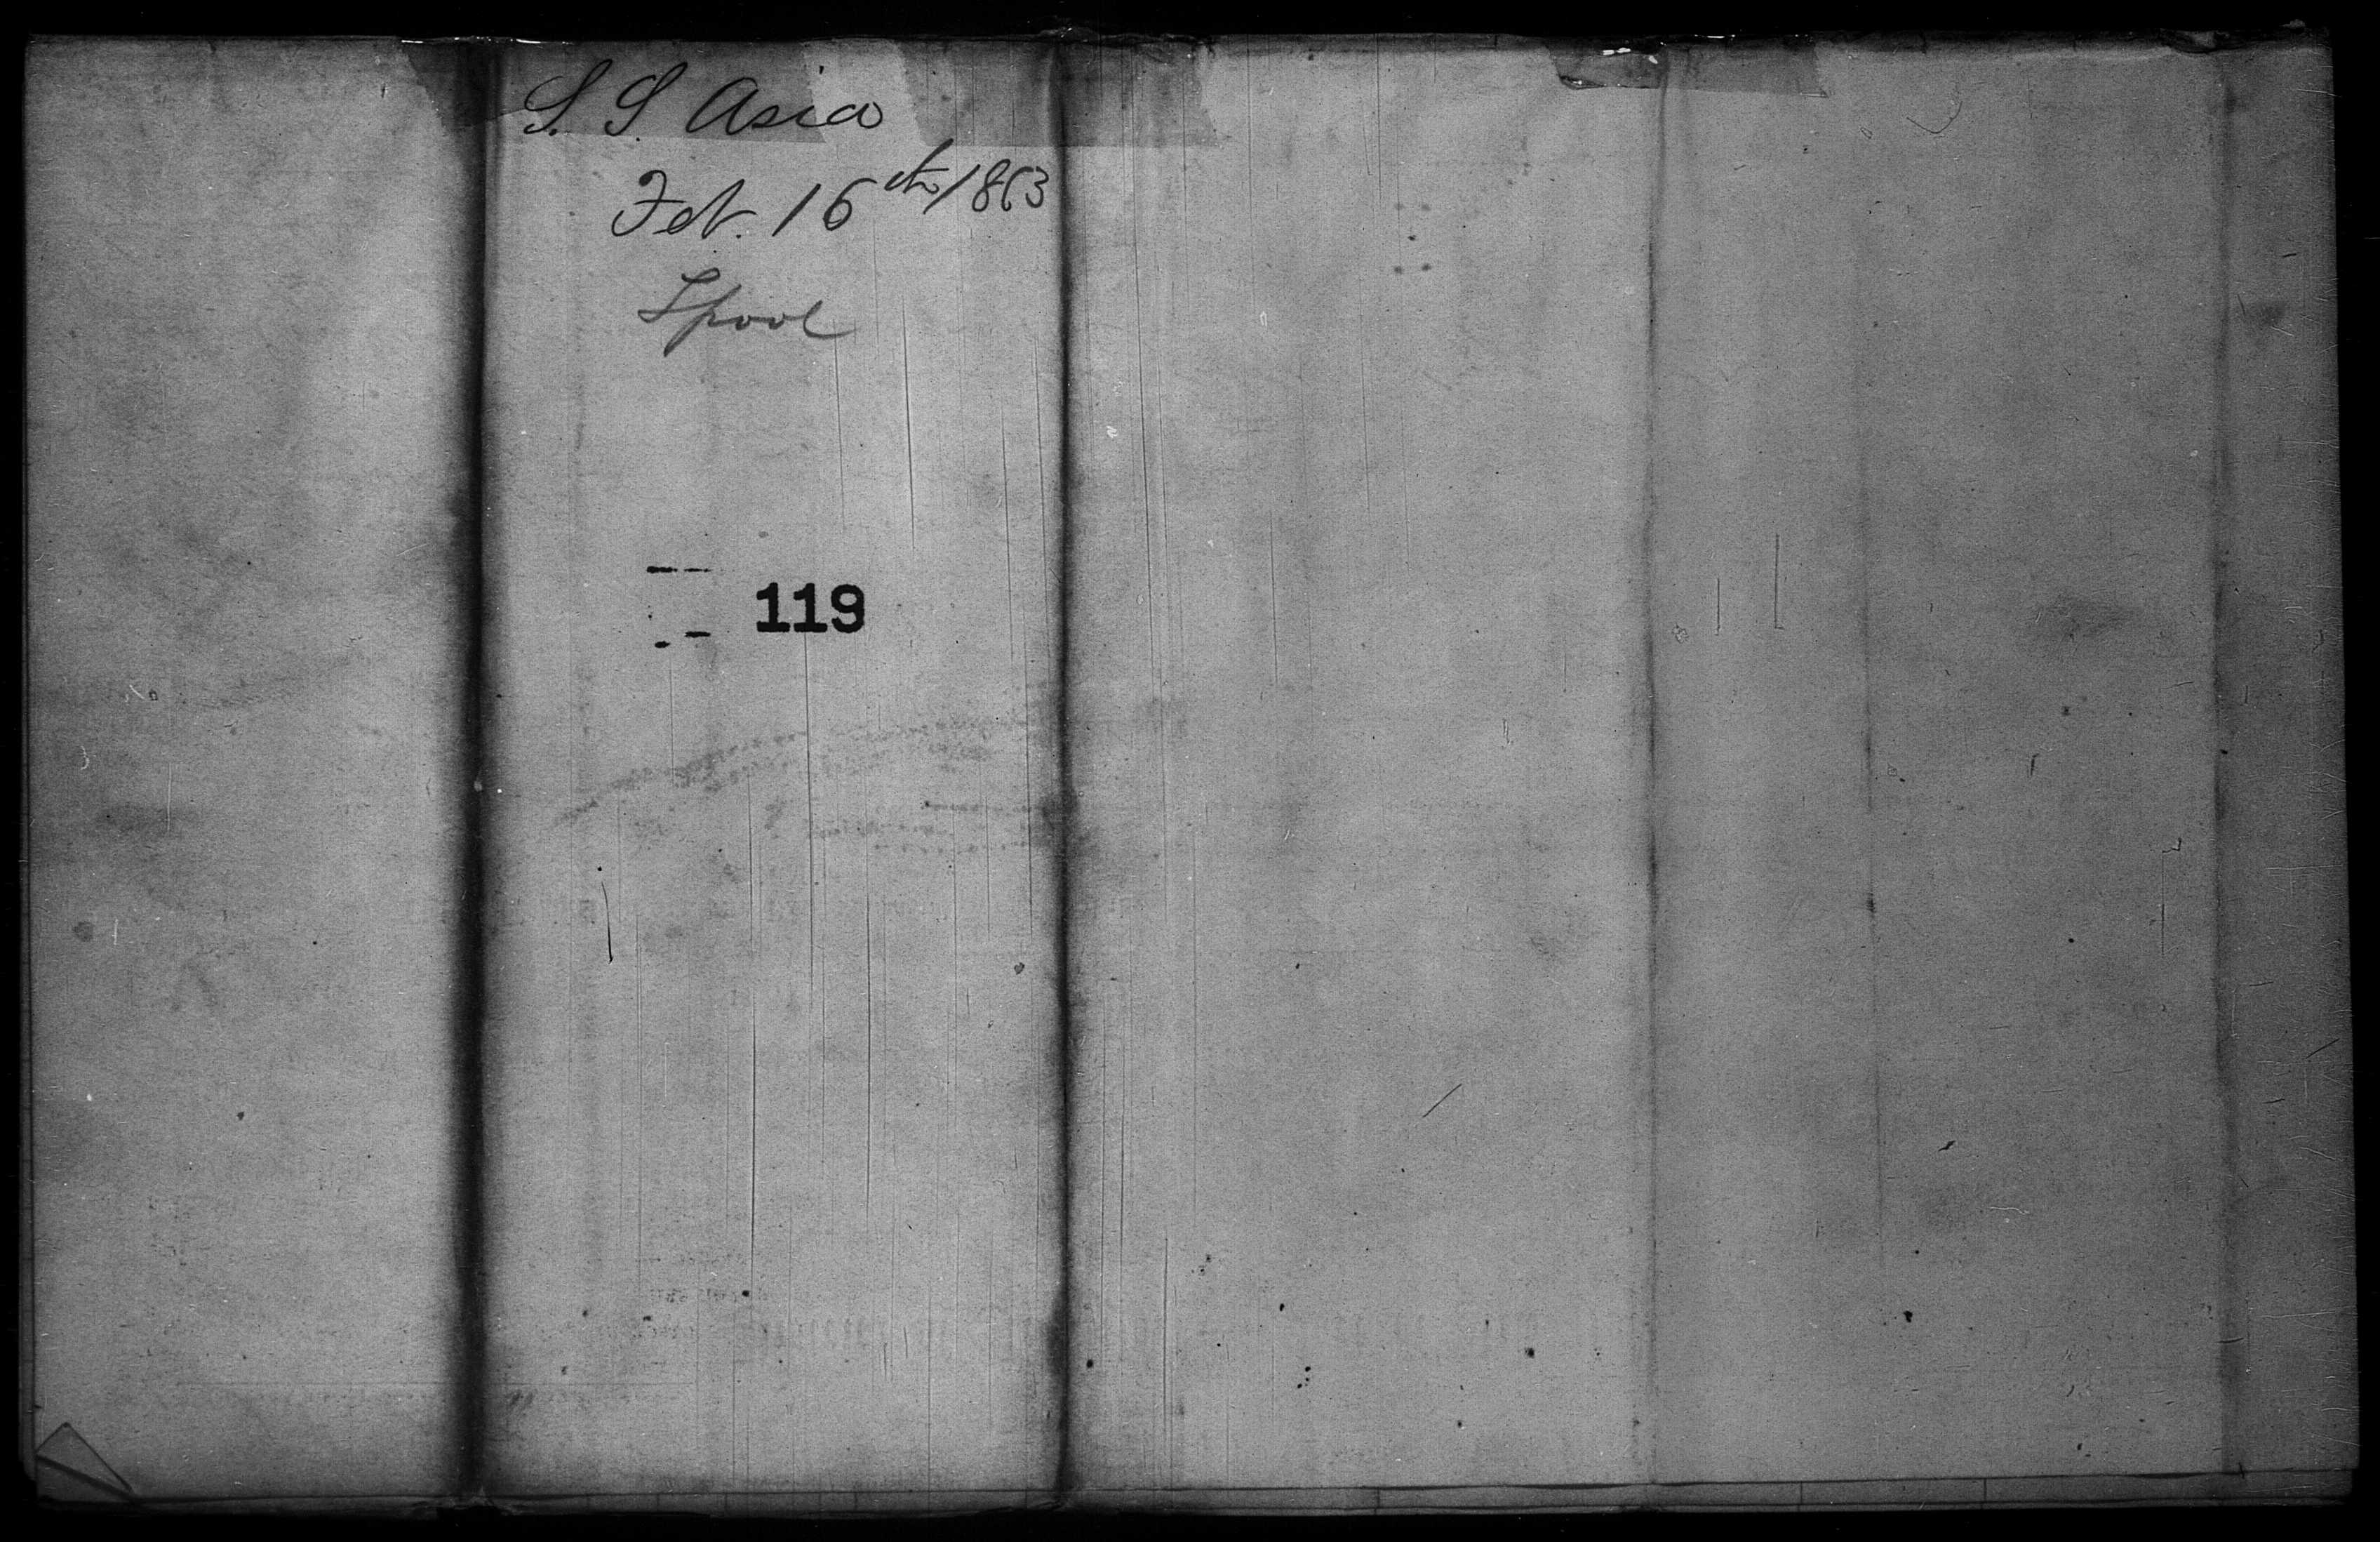 S. S Asia
Feb. 16th 1863
Lpool
119